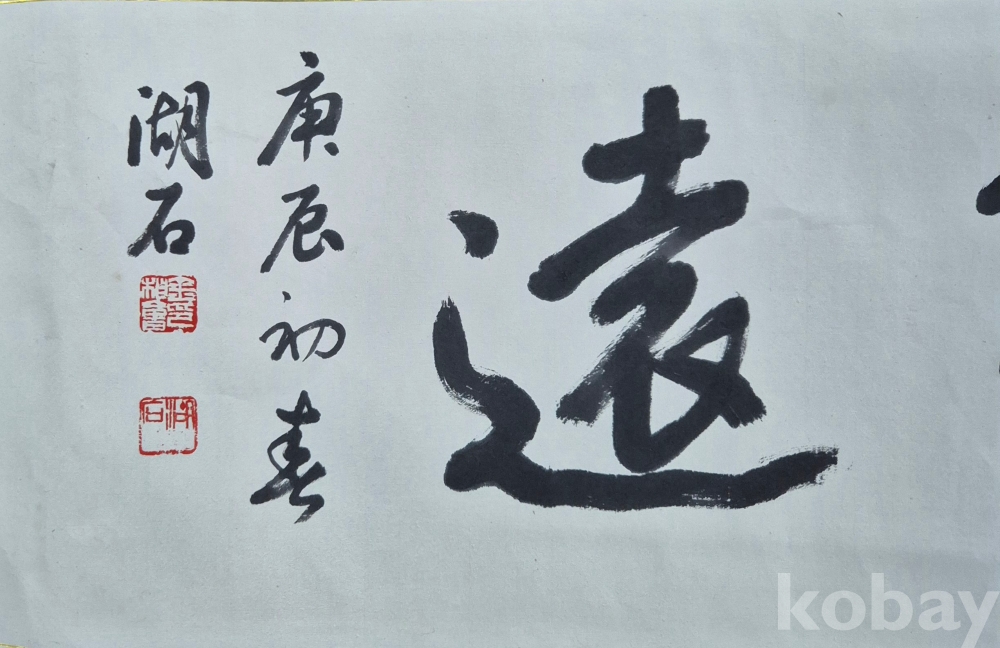 遠
庚辰初春
湖石
kobay